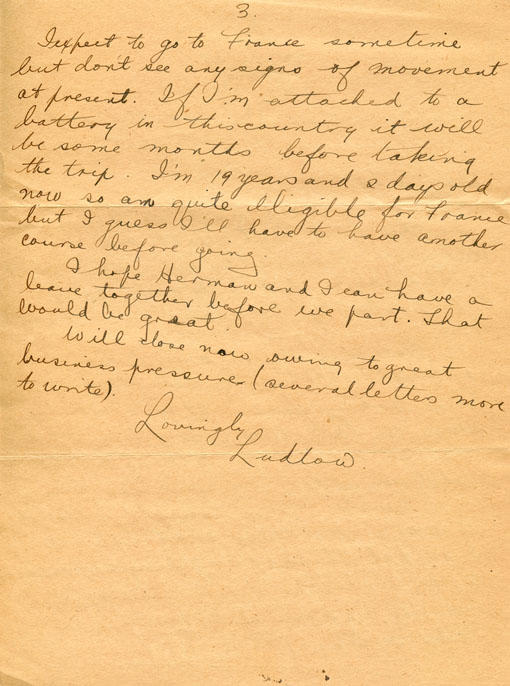 3.
I expect to go to France sometime
but don't see any signs of movement
at present. If I'm attached to a
battery in this country it will
be some months before taking
the trip. I'm 19 years and 2 days old
now so am quite elligible for France
but I guess I'll have to have another
course before going.
I hope Herman and I can have a
leave together before we part. That
would be great.
Will close now owing to great
business pressure (several letters more
to write).
Lovingly
Ludlow.